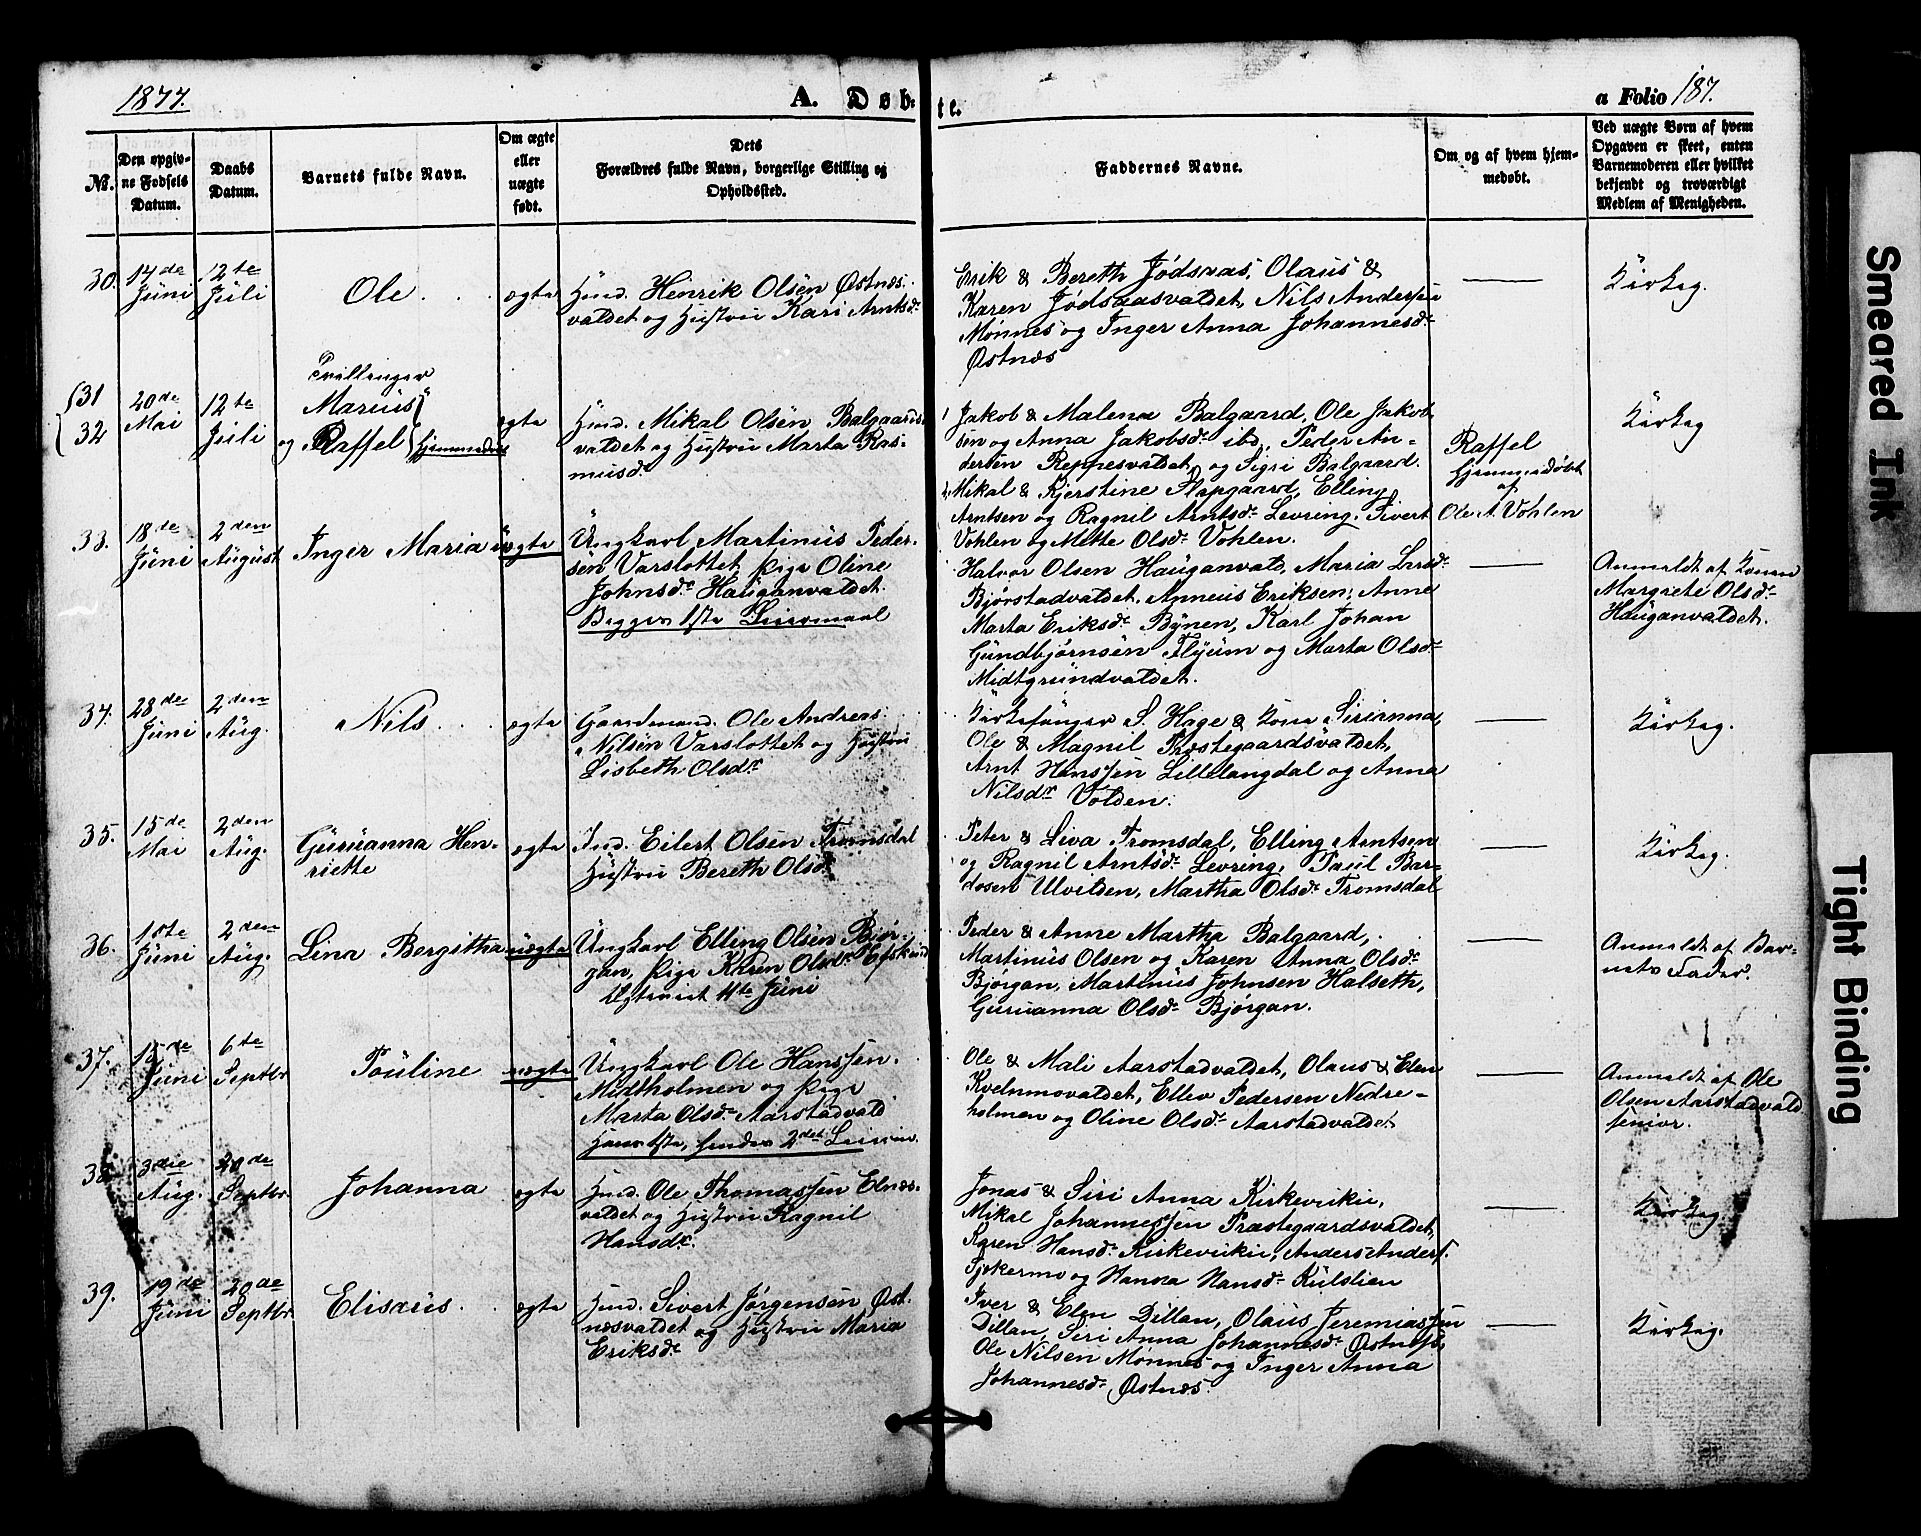 1877.
A. Døb-
te.
a Folio 187.
No.
Den opgiv-
ne Fødsels
Datum.
Daabs
Datum.
Barnets fulde Navn.
Om ægte
eller
uægte
født.
Dets
Forældres fulde Navn, borgerlige Stilling og
Opholdssted.
Faddernes Navne.
Om og af hvem hjem-
medøbt.
Ved uægte Børn af hvem
Opgaven er skeet, enten
Barnemoderen eller hvilket
bekjendt og troværdigt
Medlem af Menigheden.
30.
14de
Juni
12te
Juli
Ole
ægte
Hmd. Henrik Olsen Østnæs-
valdet og Hustru Kari Arntsdr
Erik & Bereth Jødsaas, Olaus &
Karen Jødsaasvaldet, Nils Andersen
Mønnes og Inger Anna Johannesdr
Østnæs
Kirkeg.
31
32
20de
Mai
12te
Juli
Tvillinger
Marius
og Raffel Hjemmedøbt
ægte
Hmd. Mikal Olsen Balgaards-
valdet og Hustru Marta Ras-
musdr
1 Jakob & Malena Balgaard, Ole Jakob-
sen og Anna Jakobsdr ibd, Peder An-
dersen Reppesvaldet og Sigri Balgaard.
2 Mikal & Kjerstine Slapgaard, Elling
Arntsen og Ragnil Arntsdr Levring, Sivert
Vohlen og Mette Olsdr Vohlen.
Raffel
hjemmedøbt
af
Ole A. Vohlen
Kirkeg
33.
18de
Juni
2den
August
Inger Maria
uægte
Ungkarl Martinus Peder-
sen Varslottet, Pige Oline
Johnsdr Hauganvaldet.
Begges 1ste Leiermaal
Halvor Olsen Hauganvald, Maria Larsdr
Bjørstadvaldet, Anneus Eriksen, Anne
Marta Eriksdr Bynen, Karl Johan
Gundbjørnsen Flyum og Marta Olsdr
Midtgrundvaldet.
Anmeldt af Konen
Margrete Olsdr
Hauganvaldet.
34.
28de
Juni
2den
Aug.
Nils
ægte
Gaardmand. Ole Andreas
Nilsen Varslottet og Hustru
Lisbeth Olsdr
Kirkesanger S. Hage & Kone Sirianna,
Ole & Magnil Præstegaardsvaldet,
Arnt Hanssen Lillelangdal og Anna
Nilsdr Volden.
Kirkeg.
35.
15de
Mai
2den
Aug.
Guruanna Hen-
riette
ægte
Ind. Eilert Olsen Tromsdal
Hustru Bereth Olsdr
Peter & Liva Tromsdal, Elling Arntsen
og Ragnil Arntsdr Levring, Paul Bar-
dosen Ulvilden, Martha Olsdr Tromsdal
Kirkeg.
36.
1ste
Juni
2den
Aug.
Lina Bergitha
uægte
Ungkarl Elling Olsen Bjør-
gan, Pige Karen Olsdr
Ægteviet 4te Juni
Peder & Anne Martha Balgaard,
Martinus Olsen og Karen Anna Olsdr
Bjørgan, Martinus Johnsen Halseth,
Guruanna Olsdr Bjørgan.
Anmeldt af Bar-
nets Fader.
37.
15de
Juni
6te
Septbr
Pauline
uægte
Ungkarl Ole Hanssen
Midtholmen og Pige
Marta Olsdr Aarstadvald
Hans 1ste, hendes 2det Leierm.
Ole & Mali Aarstadvaldet, Olaus & Elen
Kvelnmovaldet, Ellev Pedersen Nedre-
holmen og Oline Olsdr Aarstadvaldet
Anmeldt af Ole
Olsen Aarstadvald
senior.
38.
3die
Aug.
20de
Septbr.
Johanna
ægte
Hmd. Ole Thomassen Elnæs-
valdet og Hustru Ragnil
Hansdr.
Jonas & Siri Anna Kirkevuku,
Mikal Johannessen Præstegaardsvaldet,
Karen Hansdr Kirkevuku, Anders Anders.
Sjækermo og Hanna Hansdr Kulslien
Kirkeg.
39.
19de
Juni
20de
Septbr.
Elisæus
ægte
Hmd. Sivert Jørgensen Øst-
næsvaldet og Hustru Maria
Eriksdr
Iver & Elen Dillan, Olaus Jeremiassen
Dillan, Siri Anna Johannesdr Østnæs,
Ole Nilsen Mønnes og Inger Anna
Johannesdr Østnæs.
Kirkeg.
Smeared Ink
Tight Binding